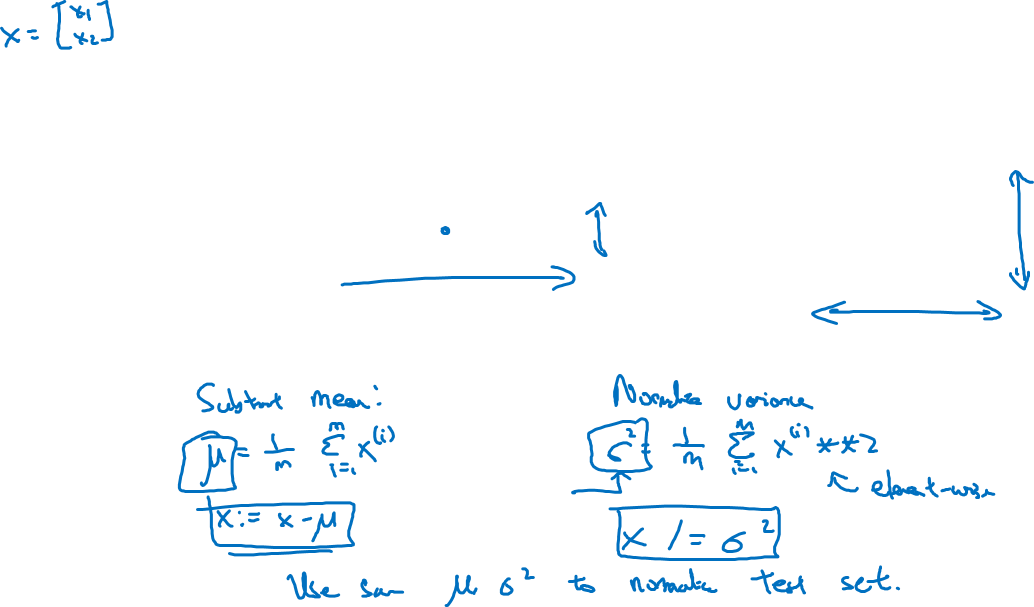 x = [x₁ x₂]
Subtract mean:
μ = 1/m Σᵢ₌₁ᵐ x⁽ⁱ⁾
x := x - μ
Normalize variance
σ² = 1/m Σᵢ₌₁ᵐ x⁽ⁱ⁾ **2
element-wise
x /= σ²
Use same μ σ² to normalize test set.